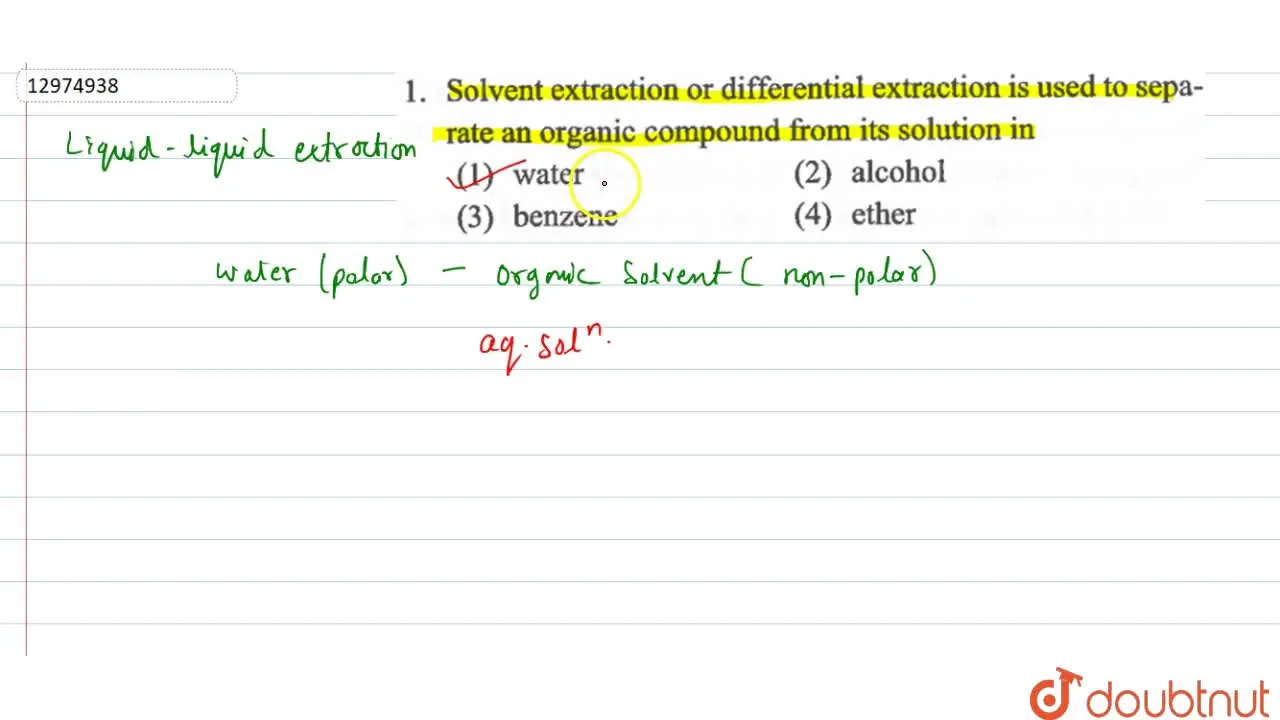 12974938
1. Solvent extraction or differential extraction is used to sepa-
rate an organic compound from its solution in
Liquid-liquid extraction
(1) water (2) alcohol
(3) benzene (4) ether
water (polar) - organic solvent (non-polar)
aq. solⁿ.
doubtnut